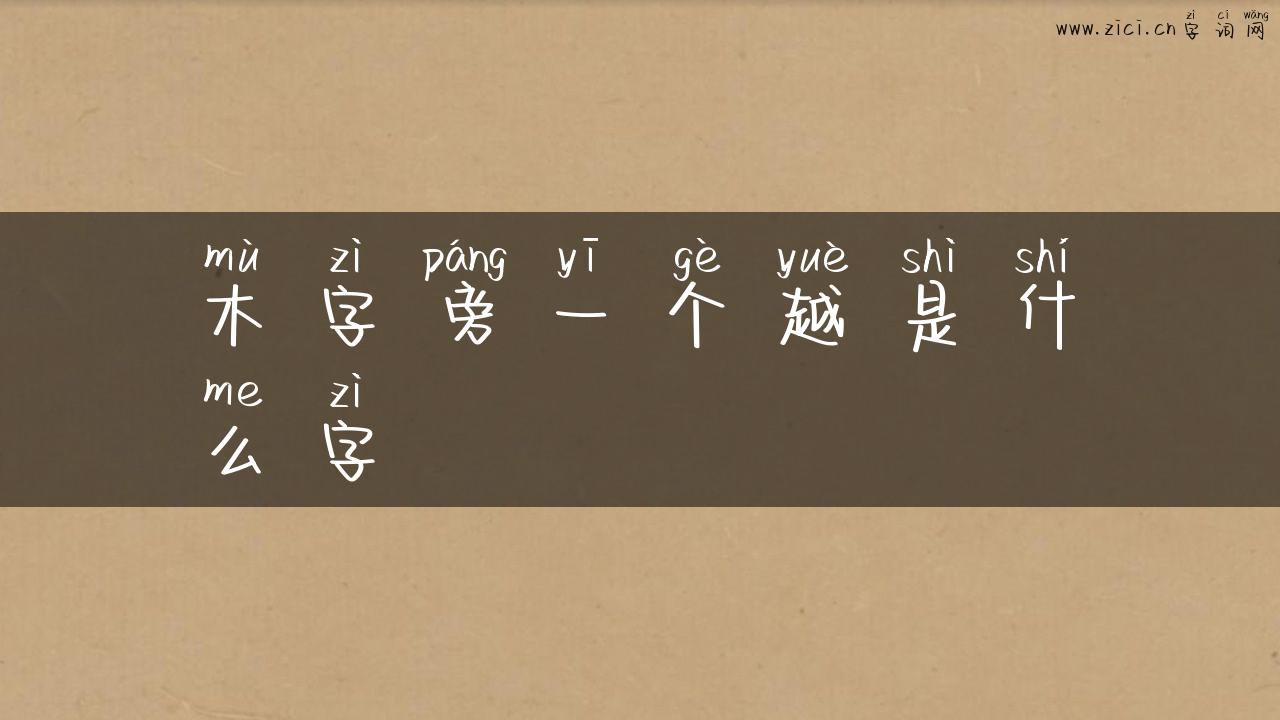 zì cí wǎng
www.zici.cn 字 词 网
mù zì páng yī gè yuè shì shí
木 字 旁 一 个 越 是 什
me zì
么 字